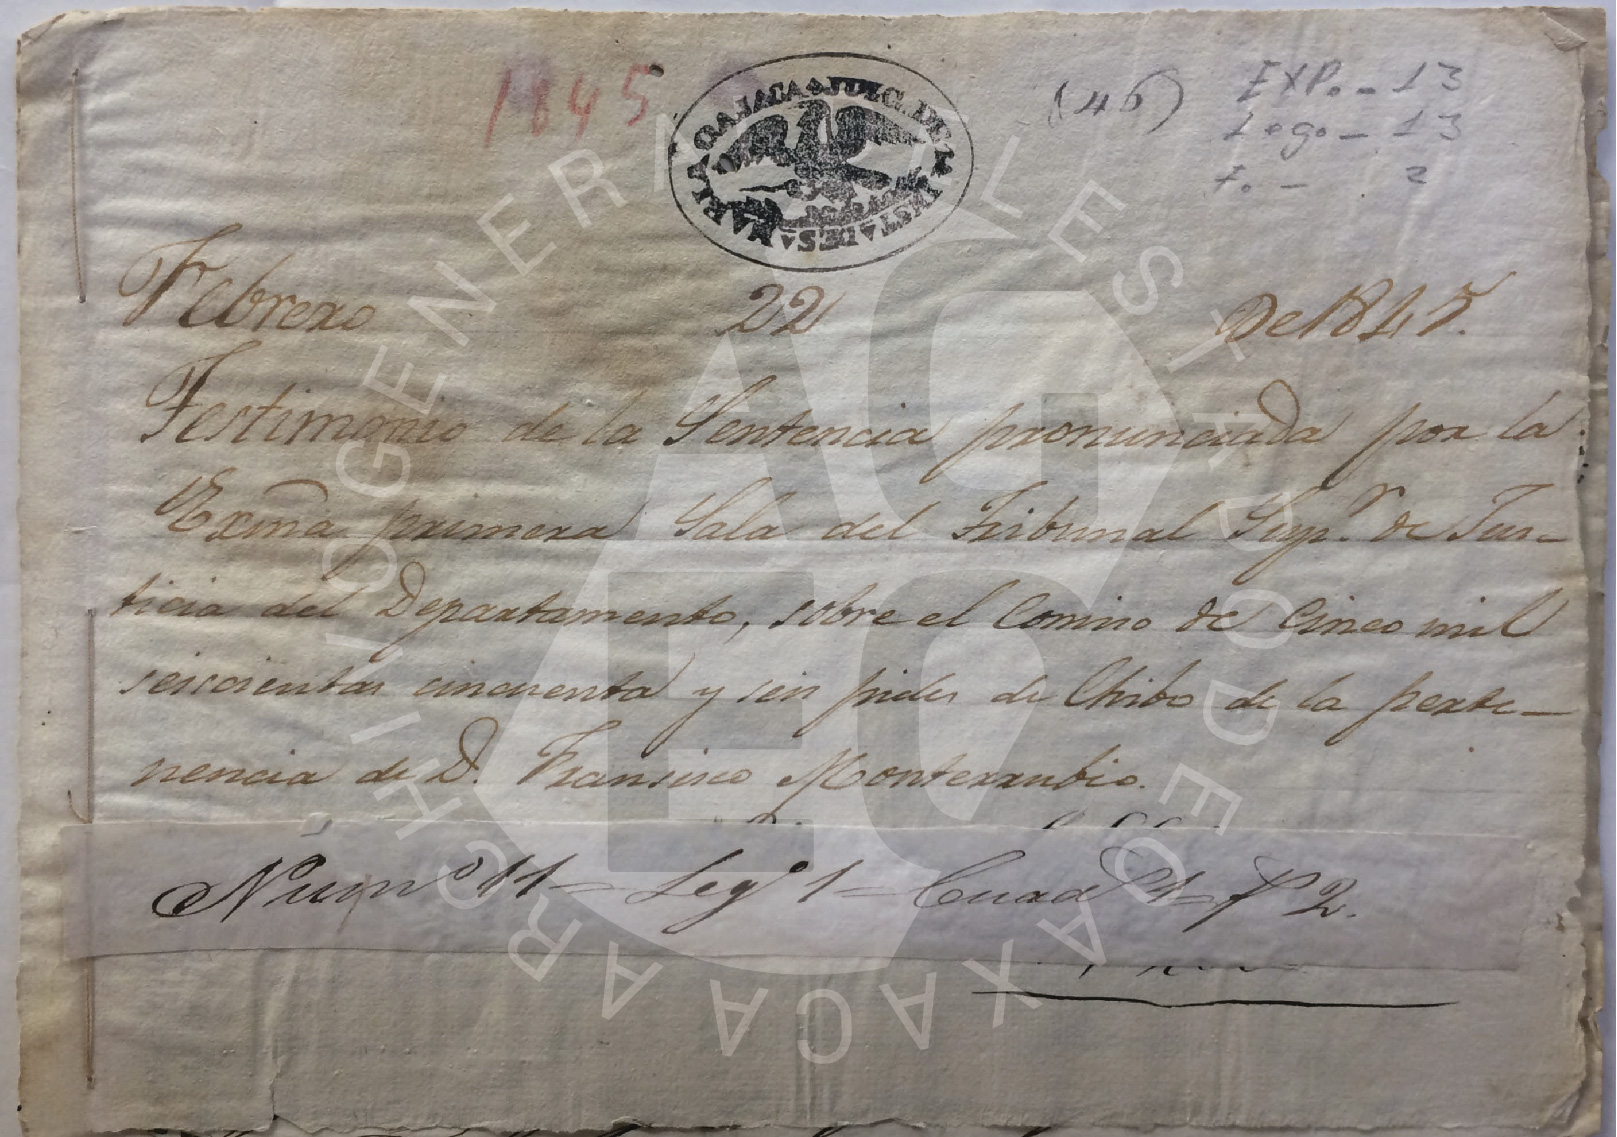 1845
(46)
EXP. - 13
Lego - 13
F. - 2
OAJACA JUZG. DE 1A INSTA DE SA MARIA
Febrero 22 de 1845.
Testimonio de la Sentencia pronunciada por la
Exma primera Sala del Tribunal Supr. de Jus-
ticia del Departamento, sobre el Comino de Cinco mil
seiscientas cincuenta y seis pieles de Chibo de la perte-
nencia de D. Fransisco Monterrubio.
Numo 11 = Lego 1 = Cuado 1 = f 2.
ARCHIVO GENERAL DEL ESTADO DE OAXACA
AGEO